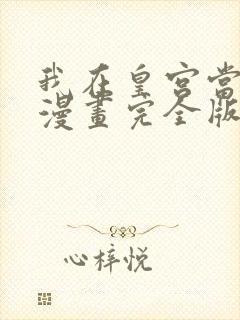 我在皇宫當
漫畫完全版
心梓悦